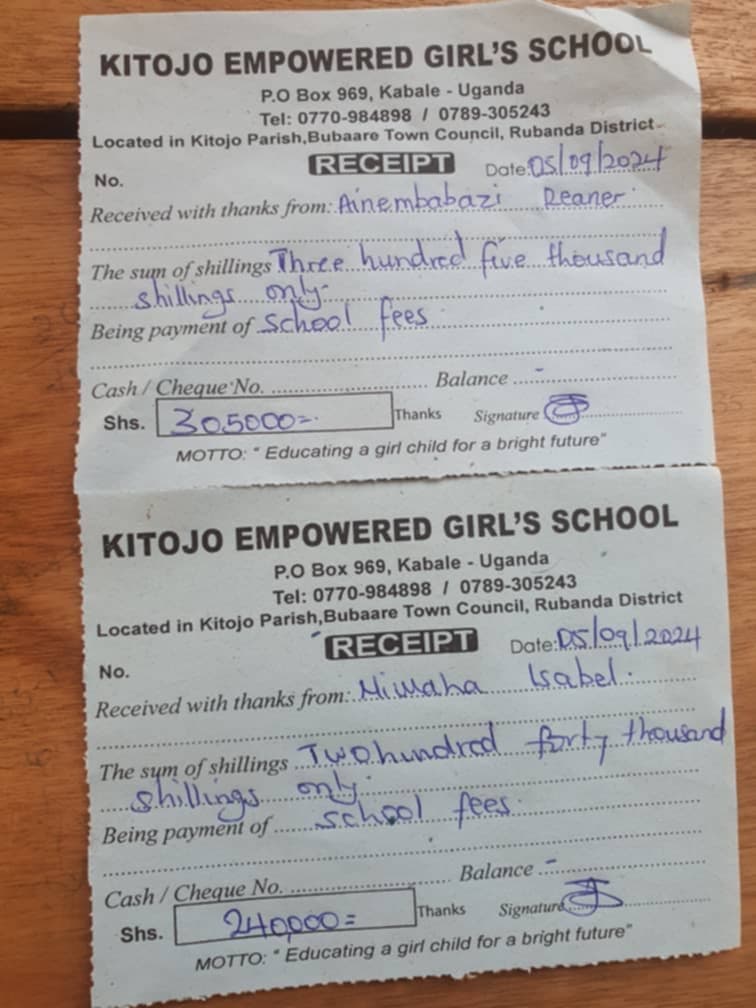 KITOJO EMPOWERED GIRL'S SCHOOL
P.O Box 969, Kabale - Uganda
Tel: 0770-984898 / 0789-305243
Located in Kitojo Parish,Bubaare Town Council, Rubanda District
RECEIPT Date: 05/09/2024
No.
Received with thanks from: Ainembabazi Reaner
The sum of shillings Three hundred five thousand
shillings only
Being payment of school fees
Cash / Cheque No. Balance -
Shs. 305000= Thanks Signature
MOTTO: " Educating a girl child for a bright future"
KITOJO EMPOWERED GIRL'S SCHOOL
P.O Box 969, Kabale - Uganda
Tel: 0770-984898 / 0789-305243
Located in Kitojo Parish,Bubaare Town Council, Rubanda District
RECEIPT Date: 05/09/2024
No.
Received with thanks from: Isabel
The sum of shillings Two hundred forty thousand
shillings only
Being payment of school fees
Cash / Cheque No. Balance -
Shs. 240,000= Thanks Signature
MOTTO: " Educating a girl child for a bright future"